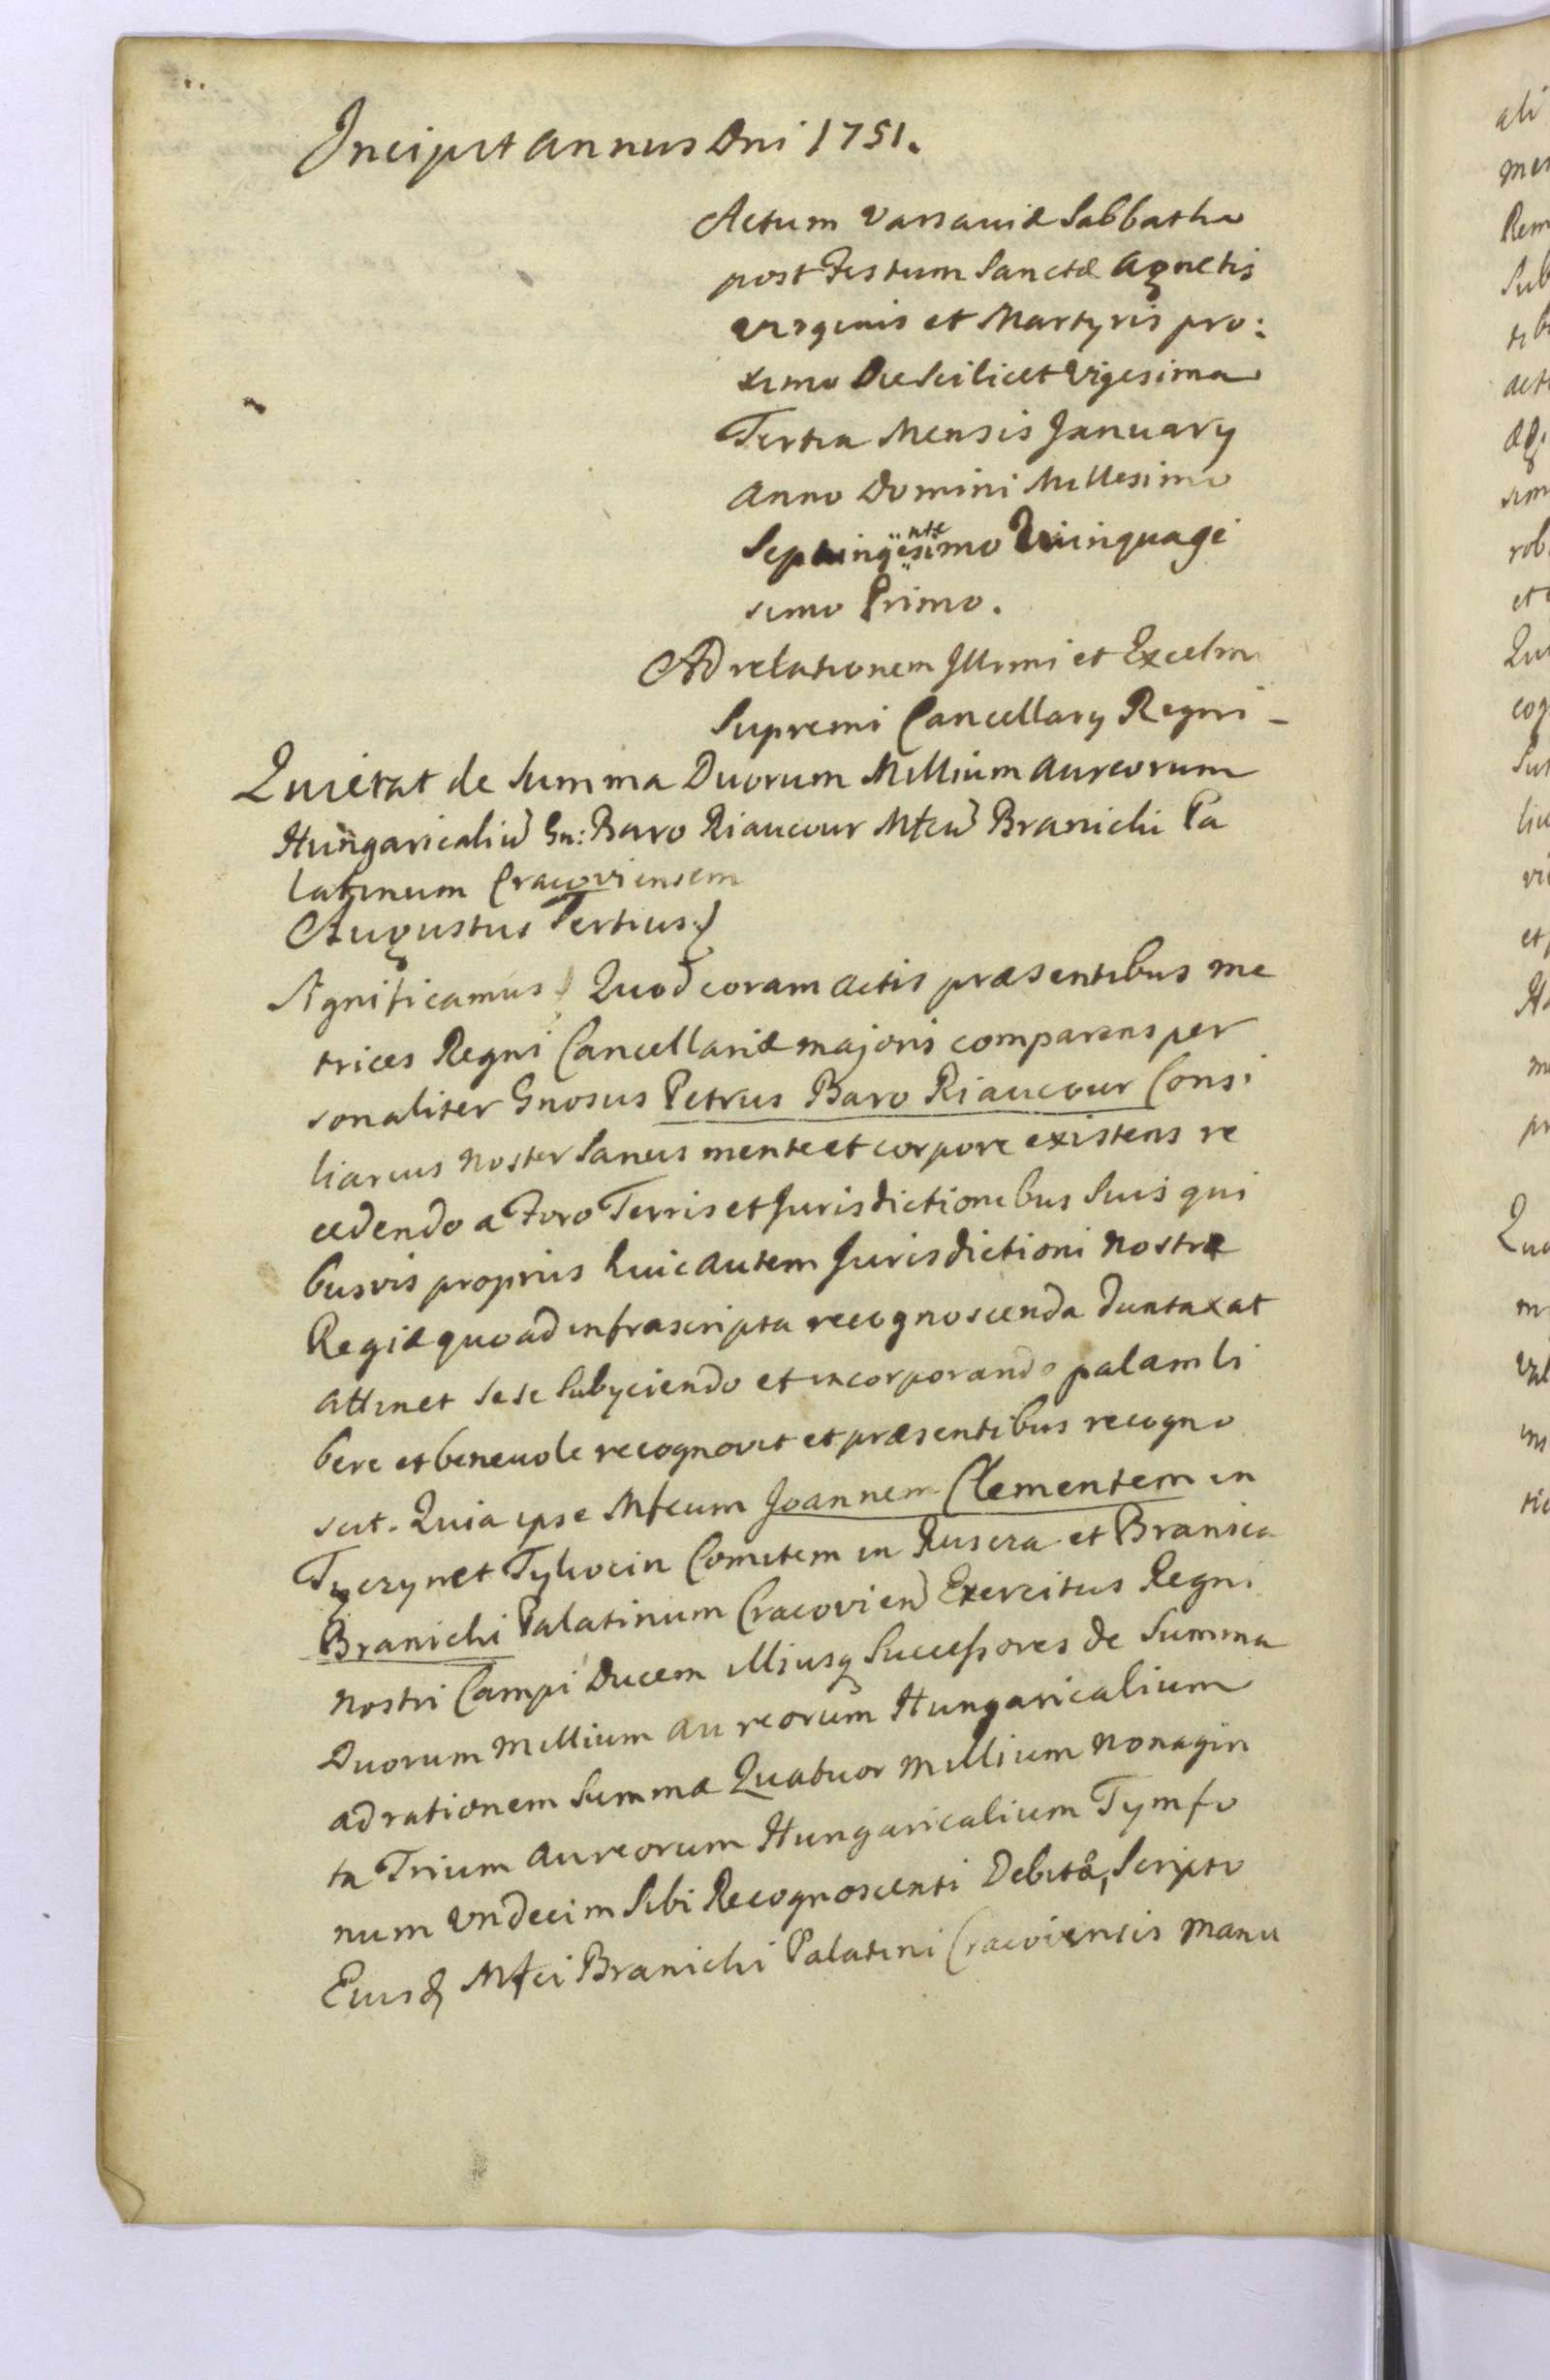 Incipit annus Dni 1751.
Actum Varsaviæ Sabbatho
post Festum Sanctæ Agnetis
Virginis et Martyris pro:
ximo Die Scilicet Vigesima
Tertia Mensis January
Anno Domini Millesimo
Septuingesimo Quinquage
simo Primo.
Ad relationem Illrmi et Excelmi
Supremi Cancellary Regni -
Quietat de Summa Duorum Millium Aureorum
Hungaricaliu Gn: Baro Riaucour Mfcu Branicki Pa
latinum Cracoviensem
Augustus Tertius
Significamus Quod coram Actis præsentibus me
trices Regni Cancellariæ majoris comparens per
sonaliter Gnosus Petrus Baro Riaucour Consi
liarius Noster Sanus mente et corpore existens re
cedendo a Foro Terris et Jurisdictionibus Suis qui
busvis propriis huic autem Jurisdictioni Nostræ
Regiæ quo ad infrascripta recognoscenda duntaxat
attinet Sese Subyciendo et incorporando palam li
bere et benevole recognovit et præsentibus recogno
scit. Quia ipse Mfcum Joannem Clementem in
Tyczyn et Tykocin Comitem in Ruscza et Branica
Branicki Palatinum Cracovien Exercitus Regni
Nostri Campi Ducem illiusq Successores de Summa
Duorum Millium Aureorum Hungaricalium
ad rationem Summæ Quatuor Millium Nonagin
ta Trium Aureorum Hungaricalium Tymfo
num Undecim Sibi Recognoscenti Debitâ, Scripto
Eiusd Mfci Branicki Palatini Cracoviensis Manu